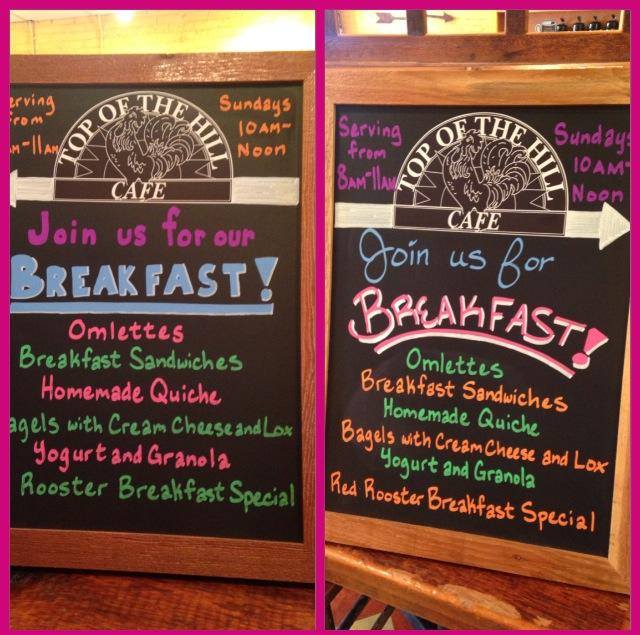 erving
from
M-11AM
TOP OF THE HILL
CAFE
Sundays
10AM-
Noon
Join us for our
BREAKFAST!
Omlettes
Breakfast Sandwiches
Homemade Quiche
agels with Cream Cheese and Lox
Yogurt and Granola
Rooster Breakfast Special
Serving
from
8AM-11AM
TOP OF THE HILL
CAFE
Sundays
10AM-
Noon
Join us for
BREAKFAST!
Omlettes
Breakfast Sandwiches
Homemade Quiche
Bagels with Cream Cheese and Lox
Yogurt and Granola
Red Rooster Breakfast Special